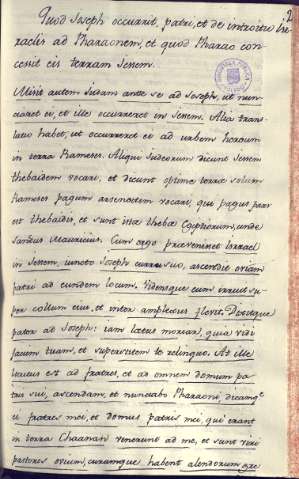 2
Quod Joseph occurrit patri, et de introitu Is-
raelis ad Pharaonem, et quod Pharao con-
cessit eis terram Jessem.
Misit autem Judam ante se ad Joseph, ut nun-
ciaret ei, et ille occurreret in Jessem. Alia trans-
latio habet, ut occurreret ei ad urbem heroum
in terra Rameses. Aliqui Judeorum dicunt Jessem
thebaidem vocari, et dicunt optime terre solum
Rameses pagum arsenoetem vocari, qui pagus
est thebaidis, et sunt iste thebe Egyptiorum, unde
sanctus Mauricius. Cum ergo pervenisset Israel
in Jessem, juncto Joseph curru suo, ascendit obviam
patri ad eundem locum. Vidensque eum irruit su-
per collum eius, et inter amplexus flevit. Dixitque
pater ad Joseph: iam letus moriar, quia vidi
faciem tuam, et superstitem te relinquo. At ille
locutus est ad fratres, et ad omnem domum pa-
tris sui, ascendam, et nunciabo Pharaoni, dicamq3
ei fratres mei, et domus patris mei, qui erant
in terra Chanaan venerunt ad me, et sunt viri
pastores ovium, curamque habent alendorum gre